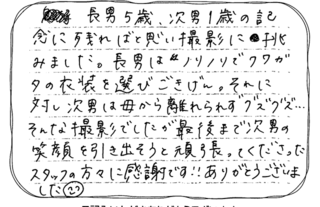 長男5歳、次男1歳の記
念に残ればと思い撮影に挑
みました。長男は“ノリノリでクワガ
タの衣装を選びごきげん。それに
対し次男は母から離れられずグズグズ…
そんな撮影でしたが最後まで次男の
笑顔を引き出そうと頑張ってくださった
スタッフの方々に感謝です!!ありがとうございま
した